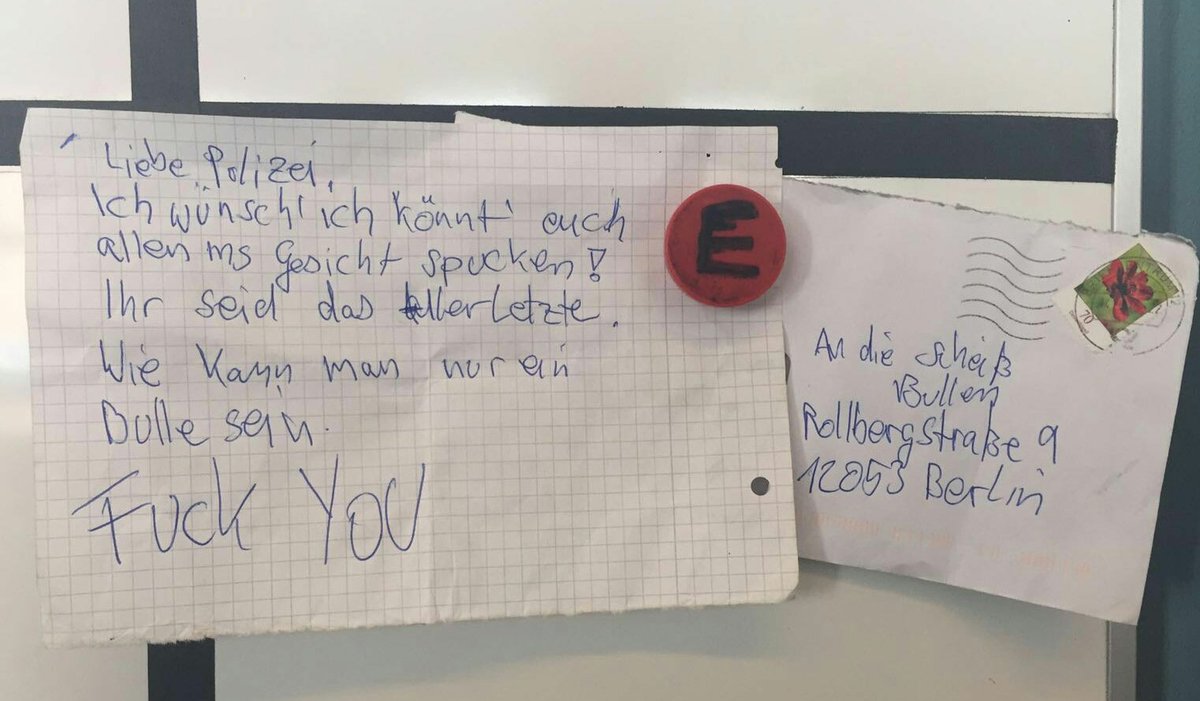 Liebe Polizei,
Ich wünsch' ich könnt' euch
allen ins Gesicht spucken!
Ihr seid das Allerletzte.
Wie kann man nur ein
Bulle sein.
FUCK YOU
E
70
An die scheiß
Bullen
Rollbergstraße 9
12053 Berlin